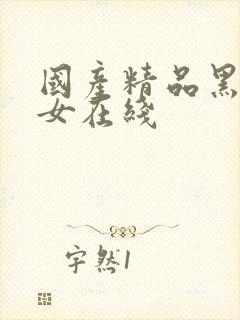 國產精品黑
女在綫
宇然1